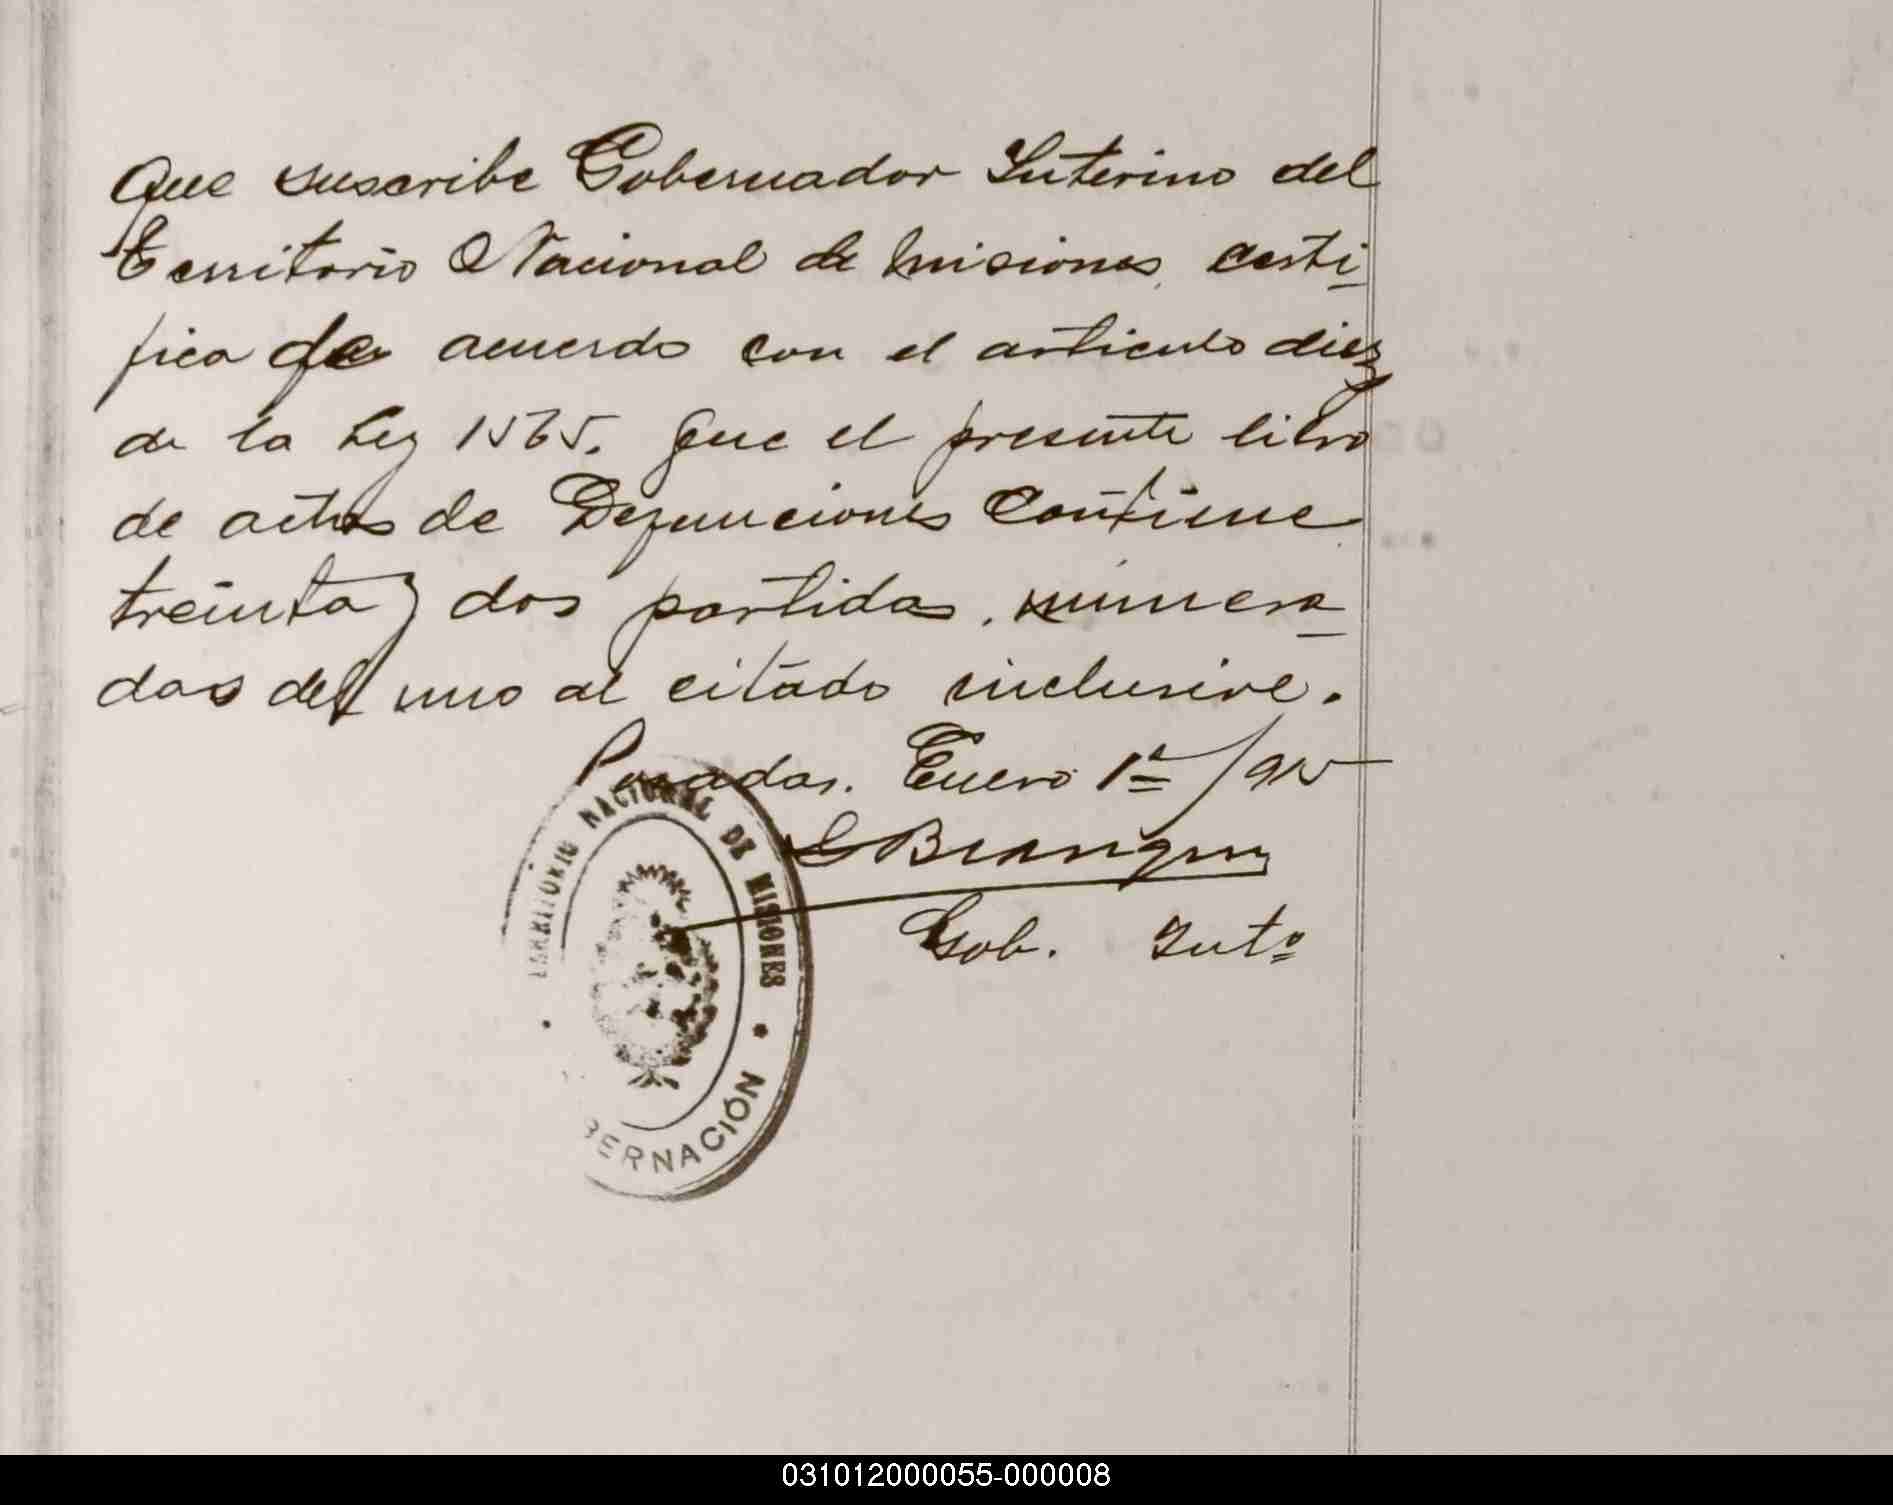 Que suscribe Gobernador Interino del
Territorio Nacional de Misiones, certi-
fica de acuerdo con el articulo diez
de la Ley 1565. que el presente libro
de actas de Defunciones Contiene
treinta y dos partidas, numera-
das del uno al citado inclusive.
Posadas. Enero 1º /915
Gob. Intº
TERRITORIO NACIONAL DE MISIONES
BERNACIÓN
031012000055-000008